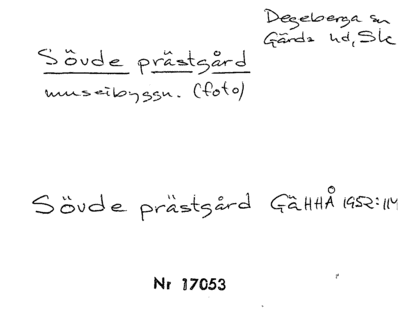 Degeberga sn
Gärds hd, Sk
Sövde prästgård
museibyggn. (foto)
Sövde prästgård GäHHÅ 1952:114
Nr 17053